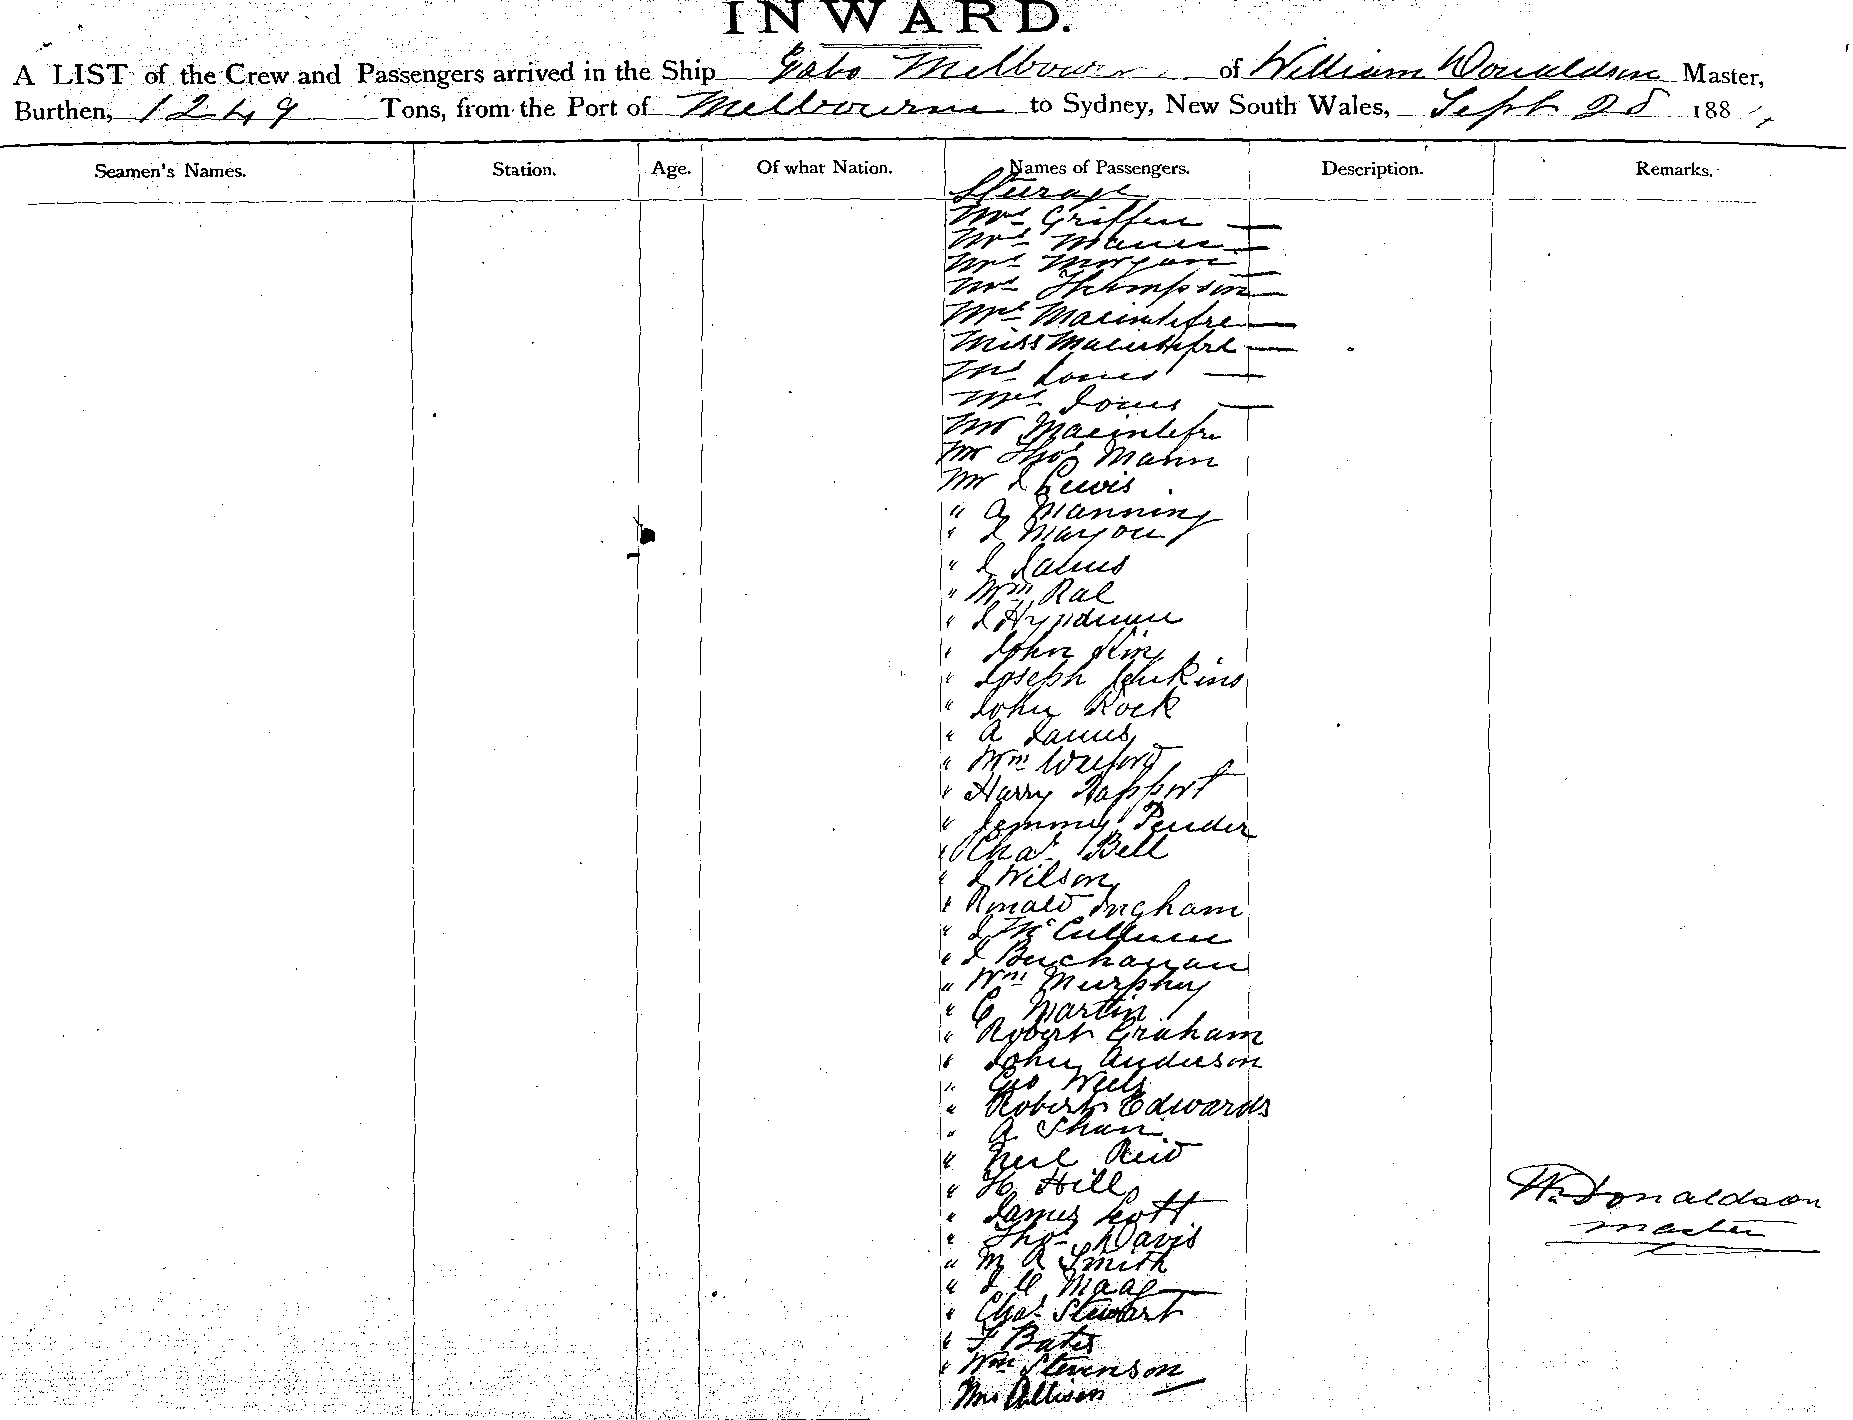 INWARD.
A LIST of the Crew and Passengers arrived in the Ship Gabo Melbourn of William Donaldson Master,
Burthen, 1249 Tons, from the Port of Melbourne to Sydney, New South Wales, Sept 28 188
Seamen's Names. Station. Age. Of what Nation. Names of Passengers. Description. Remarks.
Steerage
Mrs Griffen —
Mrs —
Mrs Morgan —
Mrs Thompson —
Mrs Macintefre —
Miss Macintefre —
Mrs Jones —
Mrs Jones —
Mr Macintefre
Mr Thos Mann
Mr J Lewis
" A Manning
" J
" J James
" Wm Rae
" J Hyndman
" John King
" Joseph Jenkins
" John Rock
" A James
" Wm
" Harry Rapport
" Jemmy Pender
" Chas Bell
" J Wilson
" Ronald Ingham
" J McCullum
" J Buchanan
" Wm Murphy
" C Martin
" Robert Graham
" John Anderson
" Geo Wells
" Robert Edwards
" A
" Neil Reid
" H Hill
" James Scott
" Thos Davis
" M R Smith
" J
" Chas Stewart
" F Bates
" Wm Stevenson
Mrs Allison
Wm Donaldson
master